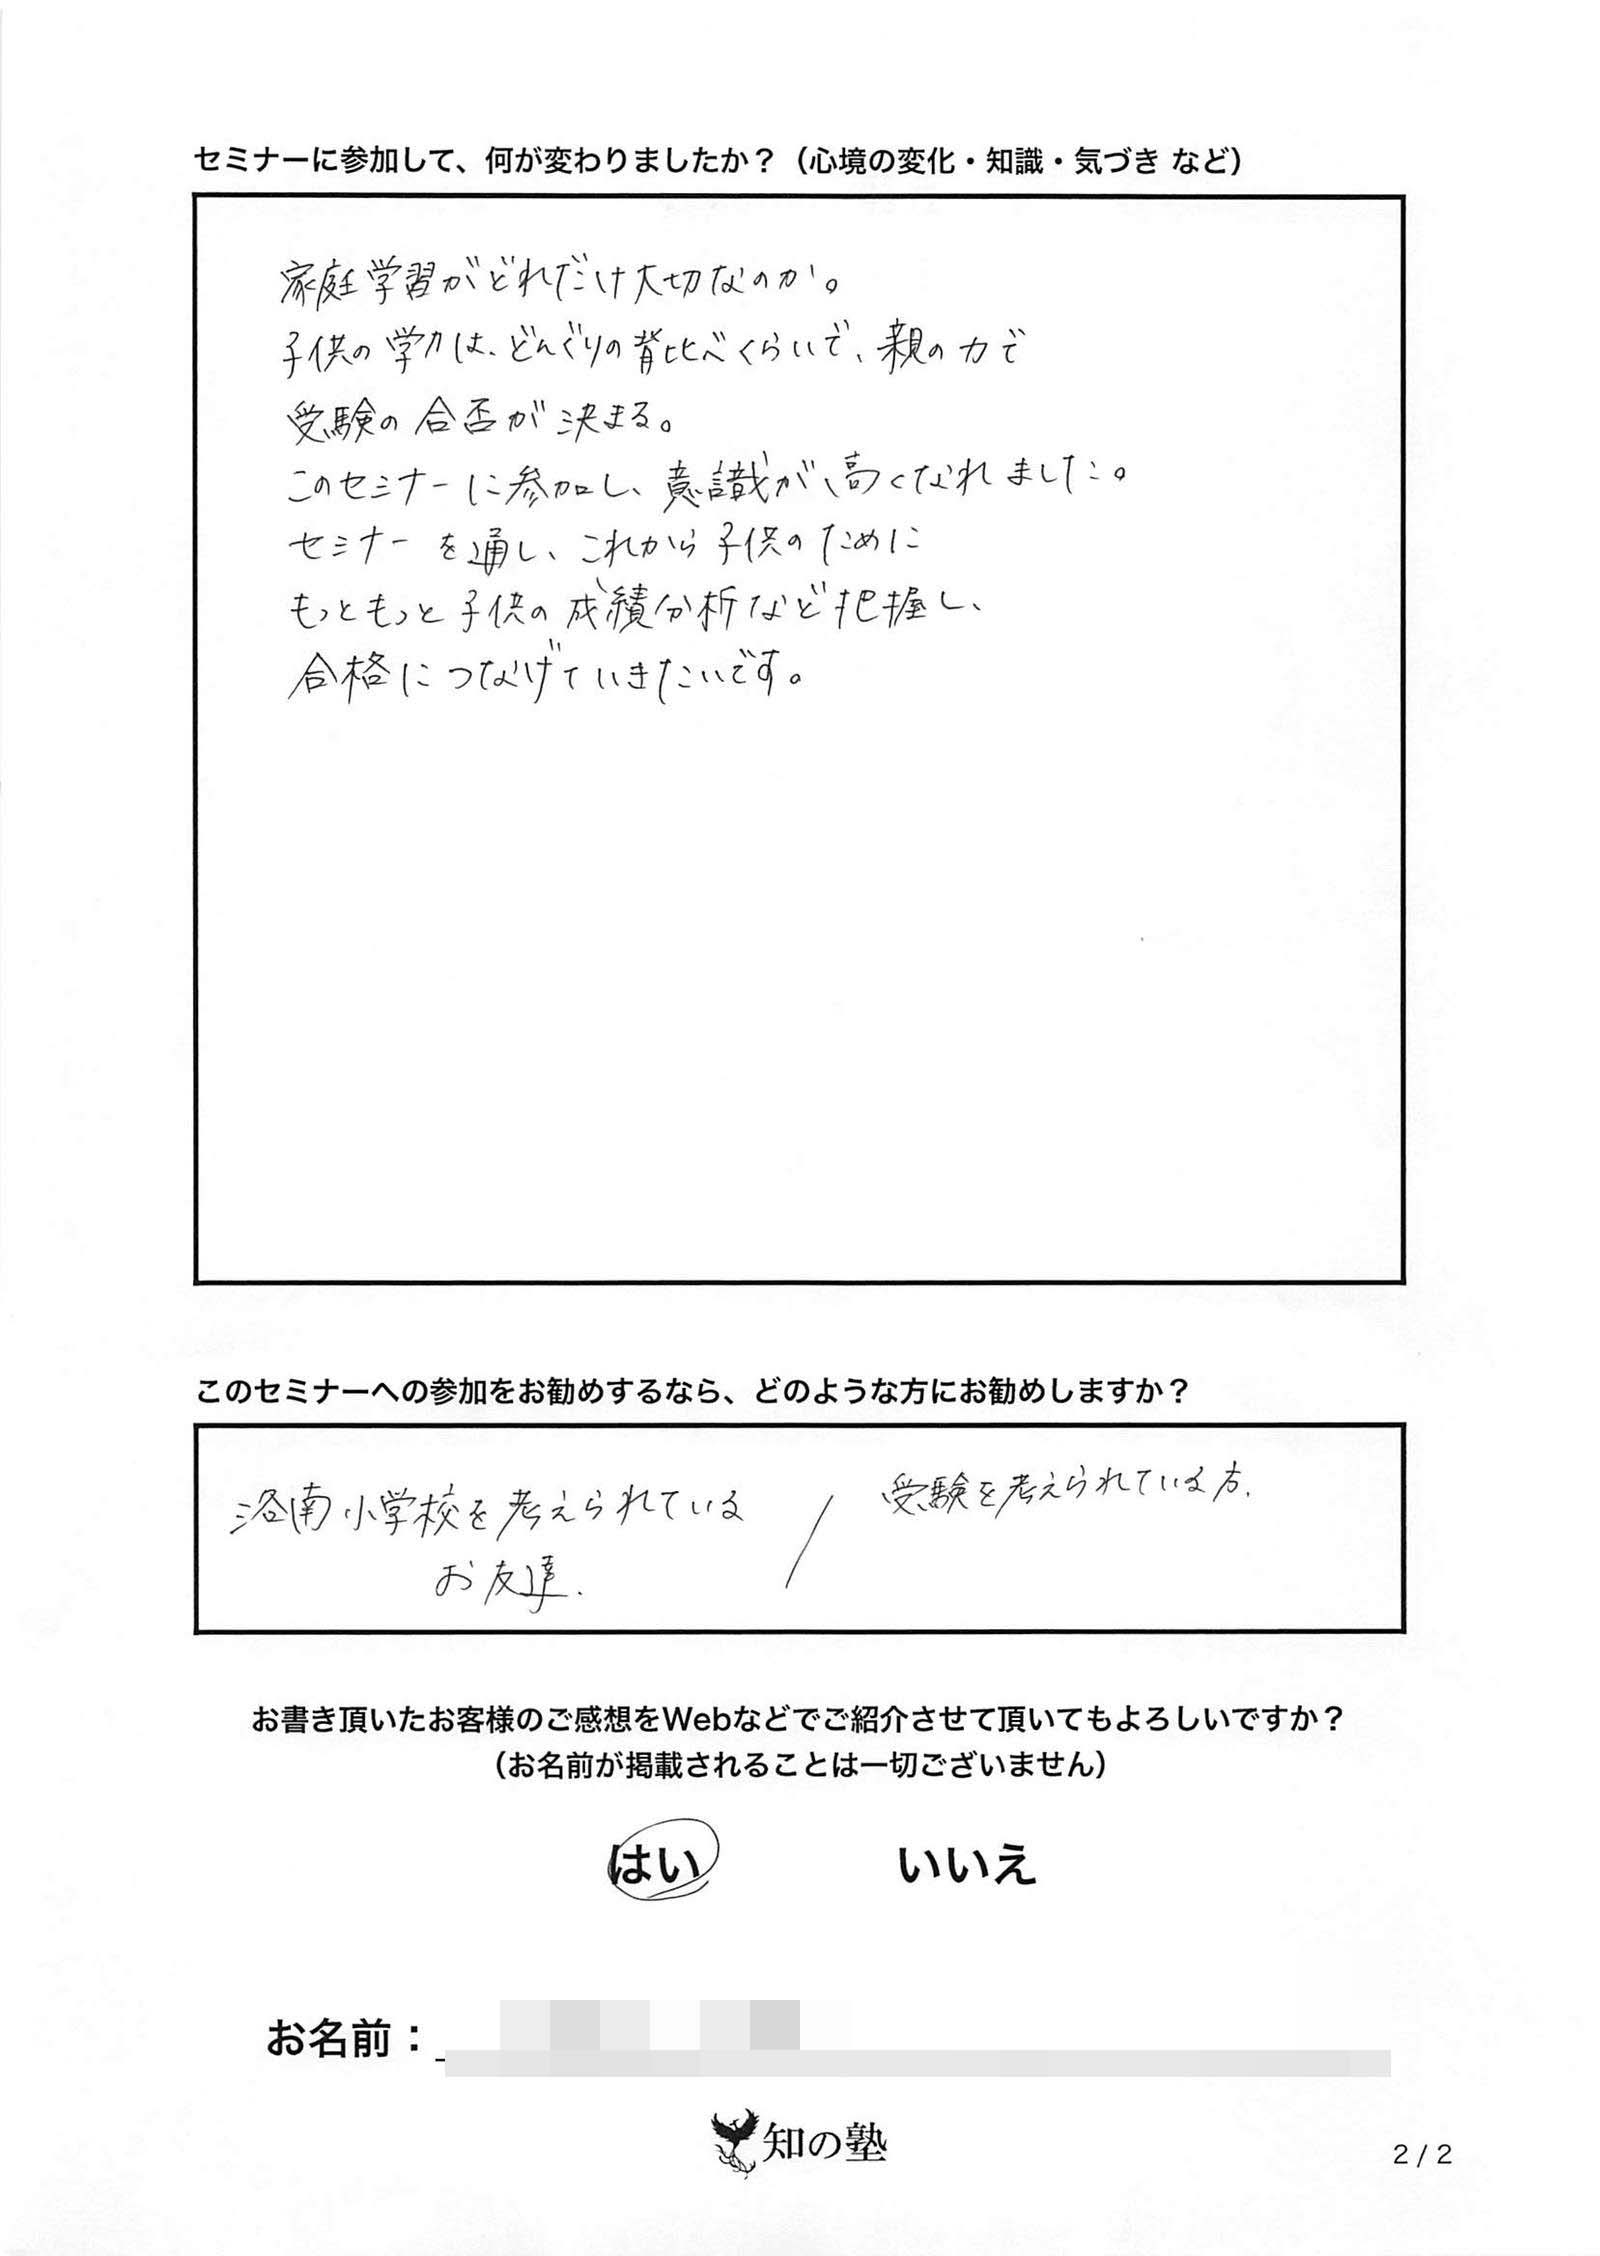 セミナーに参加して、何が変わりましたか？（心境の変化・知識・気づき など）
家庭学習がどれだけ大切なのか。
子供の学力は、どんぐりの背比べくらいで、親の力で
受験の合否が決まる。
このセミナーに参加し、意識が高くなれました。
セミナーを通し、これから子供のために
もっともっと子供の成績分析など把握し、
合格につなげていきたいです。
このセミナーへの参加をお勧めするなら、どのような方にお勧めしますか？
洛南小学校を考えられている
お友達.
/
受験を考えられている方.
お書き頂いたお客様のご感想をWebなどでご紹介させて頂いてもよろしいですか？
（お名前が掲載されることは一切ございません）
はい いいえ
お名前：
知の塾
2 / 2